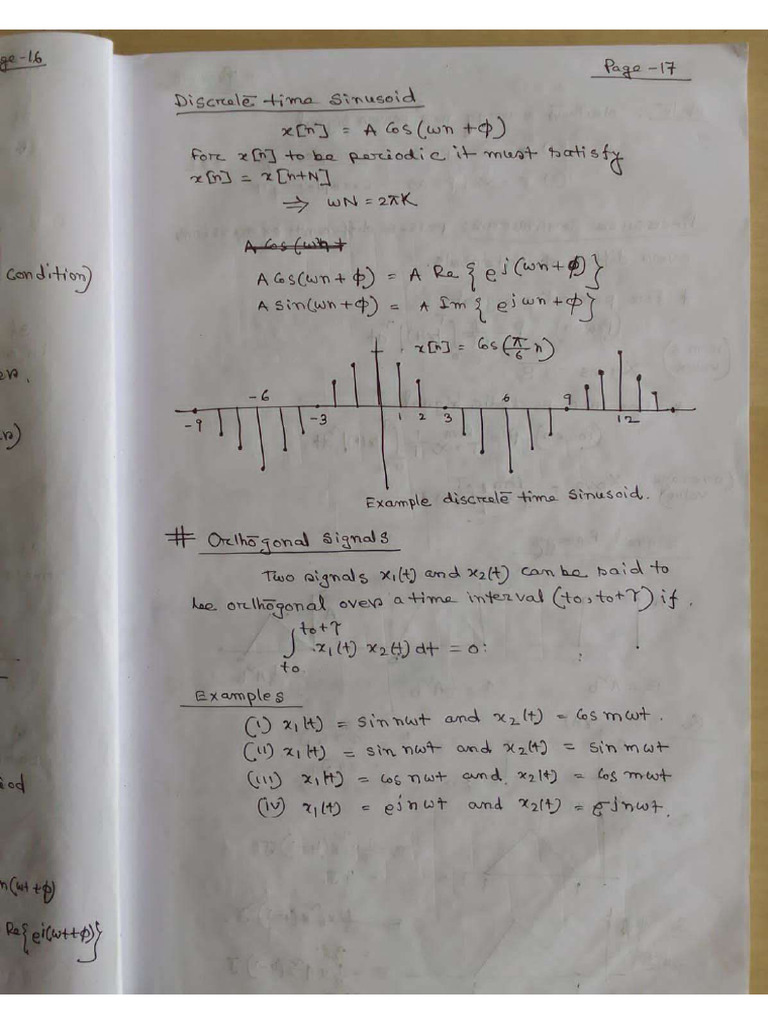 ge-16
Condition)
iod
n(wt+φ)
Re{ei(wt+φ)}
Page-17
Discrete time Sinusoid
x[n] = A Cos(ωn+φ)
Fore x[n] to be periodic it must satisfy
x[n] = x[n+N]
⇒ ωN = 2πK
A Cos(ωn+
A Cos(ωn+φ) = A Re{ej(ωn+φ)}
A sin(ωn+φ) = A Im{ejωn+φ}
x[n] = Cos(π/6 n)
-9 -6 -3 1 2 3 6 9 12
Example discrete time sinusoid.
# Orthogonal signals
Two signals x1(t) and x2(t) can be said to
be orthogonal over a time interval (to, to+T) if.
∫ to+T to x1(t) x2(t) dt = 0:
Examples
(i) x1(t) = sin nωt and x2(t) = Cos mωt.
(ii) x1(t) = sin nωt and x2(t) = sin mωt
(iii) x1(t) = cos nωt and x2(t) = Cos mωt
(iv) x1(t) = ejnωt and x2(t) = e-jnωt.